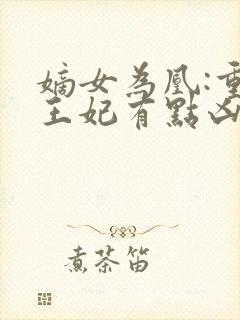 嫡女為凰:重
王妃有點凶
煮茶笛